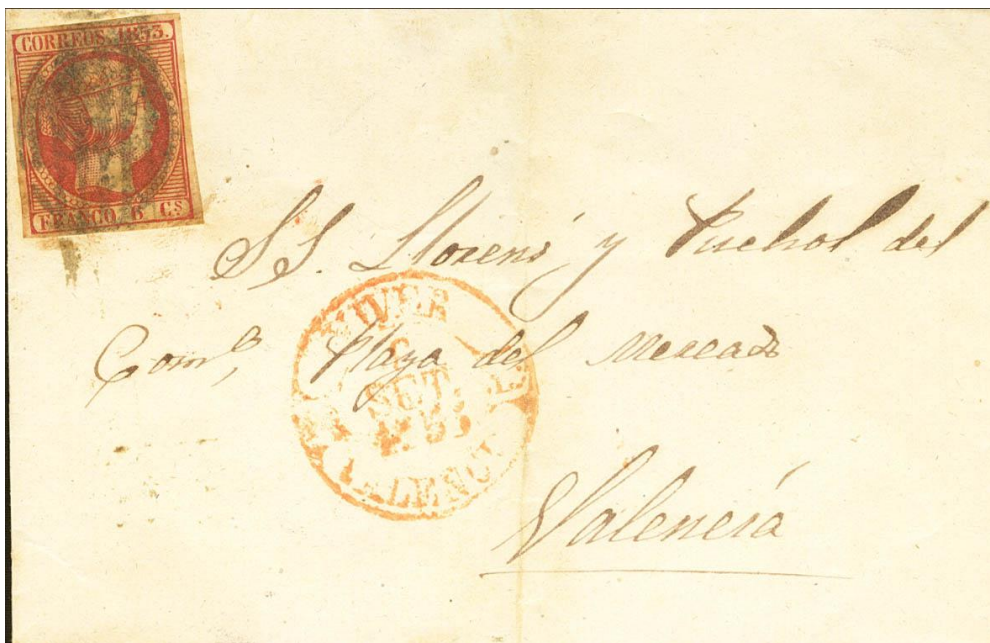 CORREOS. 1853.
FRANCO. 6 Cs
SS. Llorens y Puchol del
Comº, Plaza del Mercado
Valencia
SET.
VALENCI